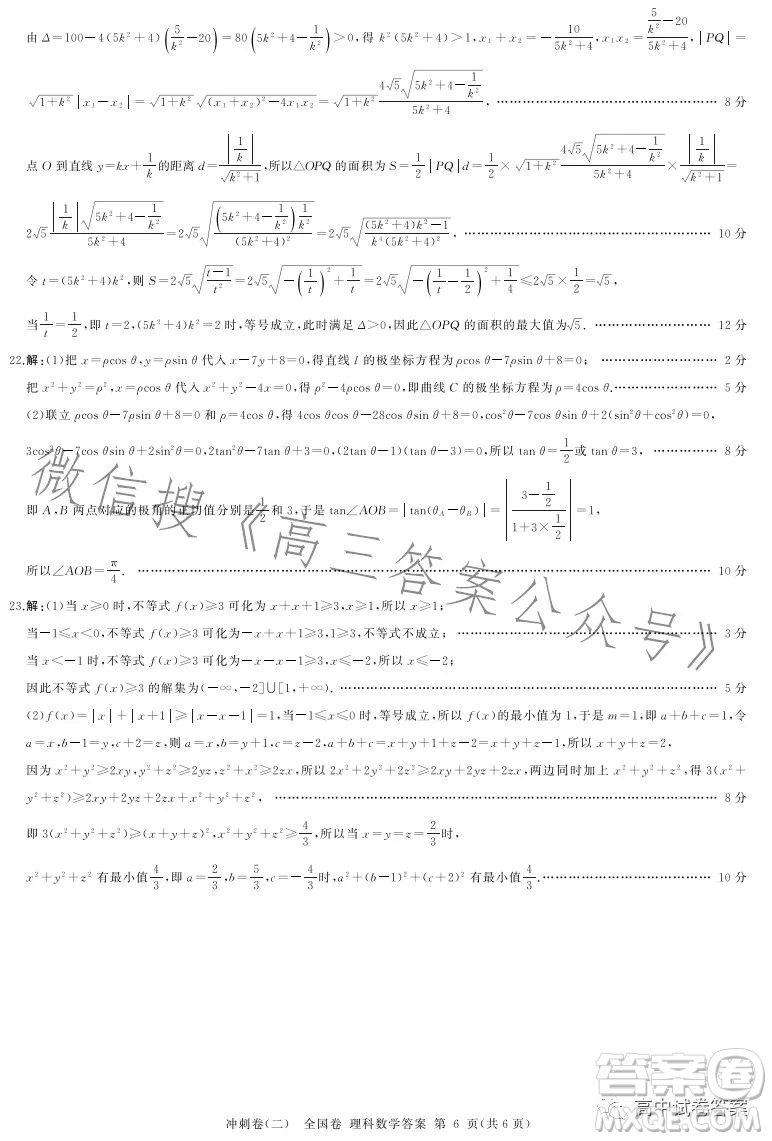 由 Δ=100−4(5k²+4)(5/k²−20)=80(5k²+4−1/k²)>0,得 k²(5k²+4)>1,x₁+x₂=−10/(5k²+4),x₁x₂=(5/k²−20)/(5k²+4),|PQ|=
√(1+k²)|x₁−x₂|=√(1+k²)√((x₁+x₂)²−4x₁x₂)=√(1+k²)·4√5√(5k²+4−1/k²)/(5k²+4), …… 8 分
点 O 到直线 y=kx+1/k 的距离 d=|1/k|/√(k²+1),所以△OPQ 的面积为 S=1/2|PQ|d=1/2×√(1+k²)·4√5√(5k²+4−1/k²)/(5k²+4)×|1/k|/√(k²+1)=
2√5·|1/k|√(5k²+4−1/k²)/(5k²+4)=2√5√((5k²+4−1/k²)1/k²/(5k²+4)²)=2√5√(((5k²+4)k²−1)/(k⁴(5k²+4)²)). …… 10 分
令 t=(5k²+4)k²,则 S=2√5√((t−1)/t²)=2√5√(−(1/t)²+1/t)=2√5√(−(1/t−1/2)²+1/4)≤2√5×1/2=√5,
当1/t=1/2,即 t=2,(5k²+4)k²=2 时,等号成立,此时满足 Δ>0,因此△OPQ 的面积的最大值为√5. …… 12 分
22.解:(1)把 x=ρcos θ,y=ρsin θ 代入 x−7y+8=0,得直线 l 的极坐标方程为 ρcos θ−7ρsin θ+8=0; …… 2 分
把 x²+y²=ρ²,x=ρcos θ 代入 x²+y²−4x=0,得 ρ²−4ρcos θ=0,即曲线 C 的极坐标方程为 ρ=4cos θ. …… 5 分
(2)联立 ρcos θ−7ρsin θ+8=0 和 ρ=4cos θ,得 4cos θcos θ−28cos θsin θ+8=0,cos²θ−7cos θsin θ+2(sin²θ+cos²θ)=0,
3cos²θ−7cos θsin θ+2sin²θ=0,2tan²θ−7tan θ+3=0,(2tan θ−1)(tan θ−3)=0,所以 tan θ=1/2或 tan θ=3, …… 8 分
即 A,B 两点对应的极角的正切值分别是1/2和 3,于是 tan∠AOB=|tan(θA−θB)|=|(3−1/2)/(1+3×1/2)|=1,
所以∠AOB=π/4. …… 10 分
23.解:(1)当 x≥0 时,不等式 f(x)≥3 可化为 x+x+1≥3,x≥1,所以 x≥1;
当−1≤x<0,不等式 f(x)≥3 可化为−x+x+1≥3,1≥3,不等式不成立; …… 3 分
当 x<−1 时,不等式 f(x)≥3 可化为−x−x−1≥3,x≤−2,所以 x≤−2;
因此不等式 f(x)≥3 的解集为(−∞,−2]∪[1,+∞). …… 5 分
(2)f(x)=|x|+|x+1|≥|x−x−1|=1,当−1≤x≤0 时,等号成立,所以 f(x)的最小值为 1,于是 m=1,即 a+b+c=1,令
a=x,b−1=y,c+2=z,则 a=x,b=y+1,c=z−2,a+b+c=x+y+1+z−2=x+y+z−1,所以 x+y+z=2,
因为 x²+y²≥2xy,y²+z²≥2yz,z²+x²≥2zx,所以 2x²+2y²+2z²≥2xy+2yz+2zx,两边同时加上 x²+y²+z²,得 3(x²+
y²+z²)≥2xy+2yz+2zx+x²+y²+z², …… 8 分
即 3(x²+y²+z²)≥(x+y+z)²,x²+y²+z²≥4/3,所以当 x=y=z=2/3时,
x²+y²+z² 有最小值4/3,即 a=2/3,b=5/3,c=−4/3时,a²+(b−1)²+(c+2)² 有最小值4/3. …… 10 分
微信搜《高三答案公众号》
冲刺卷(二) 全国卷 理科数学答案 第 6 页(共 6 页)
高中试卷答案
答案圈
MXQE.COM